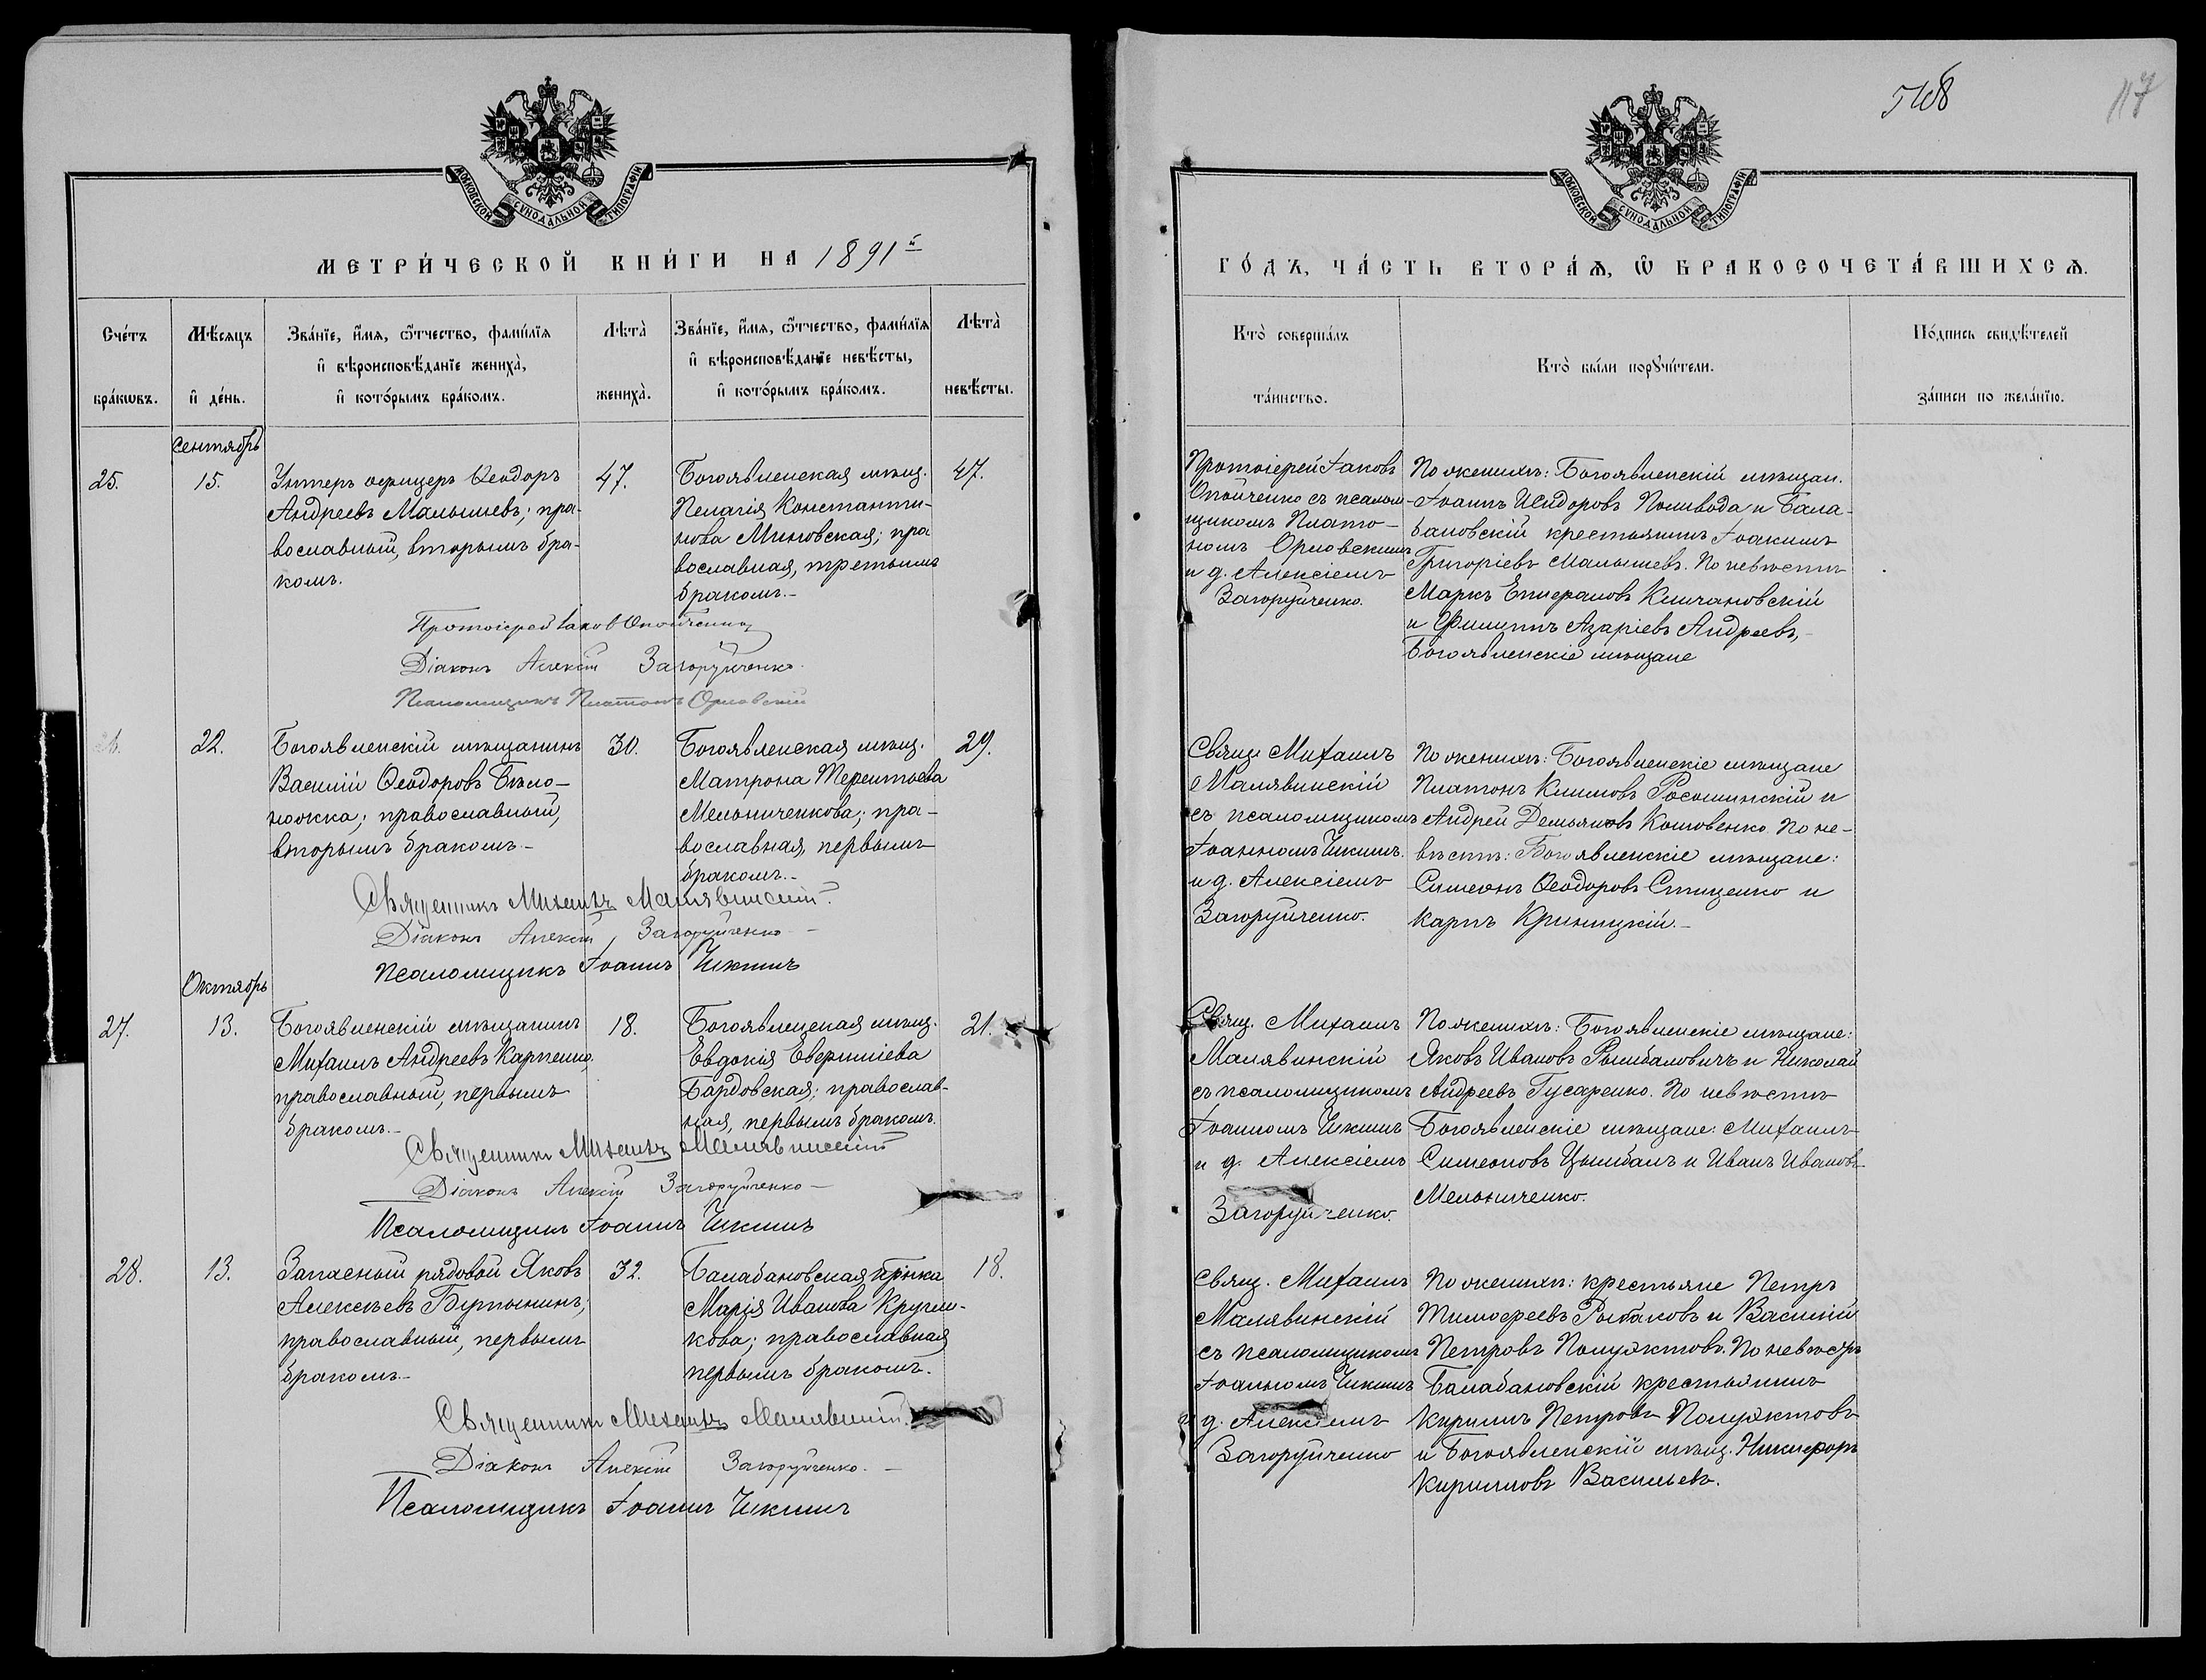 МОСКОВСКОЙ СѴНОДАЛЬНОЙ ТИПОГРАФІИ
МЕТРИ́ЧЕСКОЙ КНИ́ГИ НА 1891й
Сче́тъ бра́кѡвъ.
Мѣ́сяцъ и҆ де́нь.
Зва́нїе, и҆́мѧ, ѻ҆́тчество, фами́лїѧ
и҆ вѣроисповѣ́данїе жениха̀,
и҆ кото́рымъ бра́комъ.
Лѣта̀ жениха̀.
Зва́нїе, и҆́мѧ, ѻ҆́тчество, фами́лїѧ
и҆ вѣроисповѣ́данїе невѣ́сты,
и҆ кото́рымъ бра́комъ.
Лѣта̀ невѣ́сты.
Сентябрь
25.
15.
Унтеръ офицеръ Ѳеодоръ
Андреевъ Малышевъ; пра-
вославный, вторымъ бра-
комъ.
47.
Богоявленская мѣщ.
Пелагія Константи-
нова Миновская; пра
вославная, третьимъ
бракомъ.-
47.
Протоіерей Іаковъ Опойченко
Діаконъ Алексій Загоруйченко.
Псаломщикъ Платонъ Орловскій
26.
22.
Богоявленскій мѣщанинъ
Василій Ѳеодоровъ Бѣло-
ножка; православный,
вторымъ бракомъ.-
30.
Богоявленская мѣщ.
Матрона Терентьева
Мельниченкова; пра-
вославная, первымъ
бракомъ.-
29.
Священникъ Михаилъ Малявинскій.
Діаконъ Алексій Загоруйченко -
Псаломщикъ Іоаннъ Чикинъ
Октябрь
27.
13.
Богоявленскій мѣщанинъ
Михаилъ Андреевъ Карпенко,
православный, первымъ
бракомъ.-
18.
Богоявленская мѣщ.
Евдокія Еверпиіева
Бардовская; православ-
ная, первымъ бракомъ.
21.
Священникъ Михаилъ Малявинскій
Діаконъ Алексій Загоруйченко -
Псаломщикъ Іоаннъ Чикинъ
28.
13.
Запасный рядовой Яковъ
Алексѣевъ Бутынинъ;
православный, первымъ
бракомъ.-
32.
Балабановская кр-нка
Марія Иванова Кругли-
кова; православная
первымъ бракомъ.
18.
Священникъ Михаилъ Малявинскій.
Діаконъ Алексій Загоруйченко. -
Псаломщикъ Іоаннъ Чикинъ
117
МОСКОВСКОЙ СѴНОДАЛЬНОЙ ТИПОГРАФІИ
ГО́ДЪ, ЧА́СТЬ ВТОРА́Ѧ, Ѡ҆ БРАКОСОЧЕТА́ВШИХСѦ.
Кто̀ соверша́лъ та́инство.
Кто̀ бы́ли порꙋчи́тели.
По́дпись свидѣ́телей за́писи по жела́нїю.
Протоіерей Іаковъ
Опойченко съ псалом-
щикомъ Плато-
номъ Орловскимъ
и д. Алексіемъ
Загоруйченко.
По женихѣ: Богоявленскій мѣщан.
Іоаннъ Исидоровъ Поливода и Бала-
бановскій крестьянинъ Іоакимъ
Григоріевъ Малышевъ. По невѣстѣ
Маркъ Епифановъ Климановскій
и Филиппъ Азаріевъ Андреевъ,
Богоявленскіе мѣщане
Свящ. Михаилъ
Малявинскій
съ псаломщикомъ
Іоанномъ Чикинъ.
и д. Алексіемъ
Загоруйченко.
По женихѣ: Богоявленскіе мѣщане
Платонъ Климовъ Росошинскій и
Андрей Демьяновъ Котовенко. По не-
вѣстѣ: Богоявленскіе мѣщане:
Симеонъ Ѳеодоровъ Стиценко и
Карпъ Криницкій.-
Свящ. Михаилъ
Малявинскій
съ псаломщикомъ
Іоанномъ Чикинъ
и д. Алексіемъ
Загоруйченко.
По женихѣ: Богоявленскіе мѣщане:
Яковъ Ивановъ Рымбаловичъ и Николай
Андреевъ Гусаренко. По невѣстѣ
Богоявленскіе мѣщане: Михаилъ
Симеоновъ Цымбалъ и Иванъ Ивановъ
Мельниченко.
Свящ. Михаилъ
Малявинскій
съ псаломщикомъ
Іоанномъ Чикинъ
и д. Алексіемъ
Загоруйченко
По женихѣ: крестьяне Петръ
Тимофеевъ Рыбаковъ и Василій
Петровъ Полуяктовъ. По невѣстѣ
Балабановскій крестьянинъ
Кириллъ Петровъ Полуяктовъ
и Богоявленскій мѣщ. Никифоръ
Кирилловъ Васильевъ.